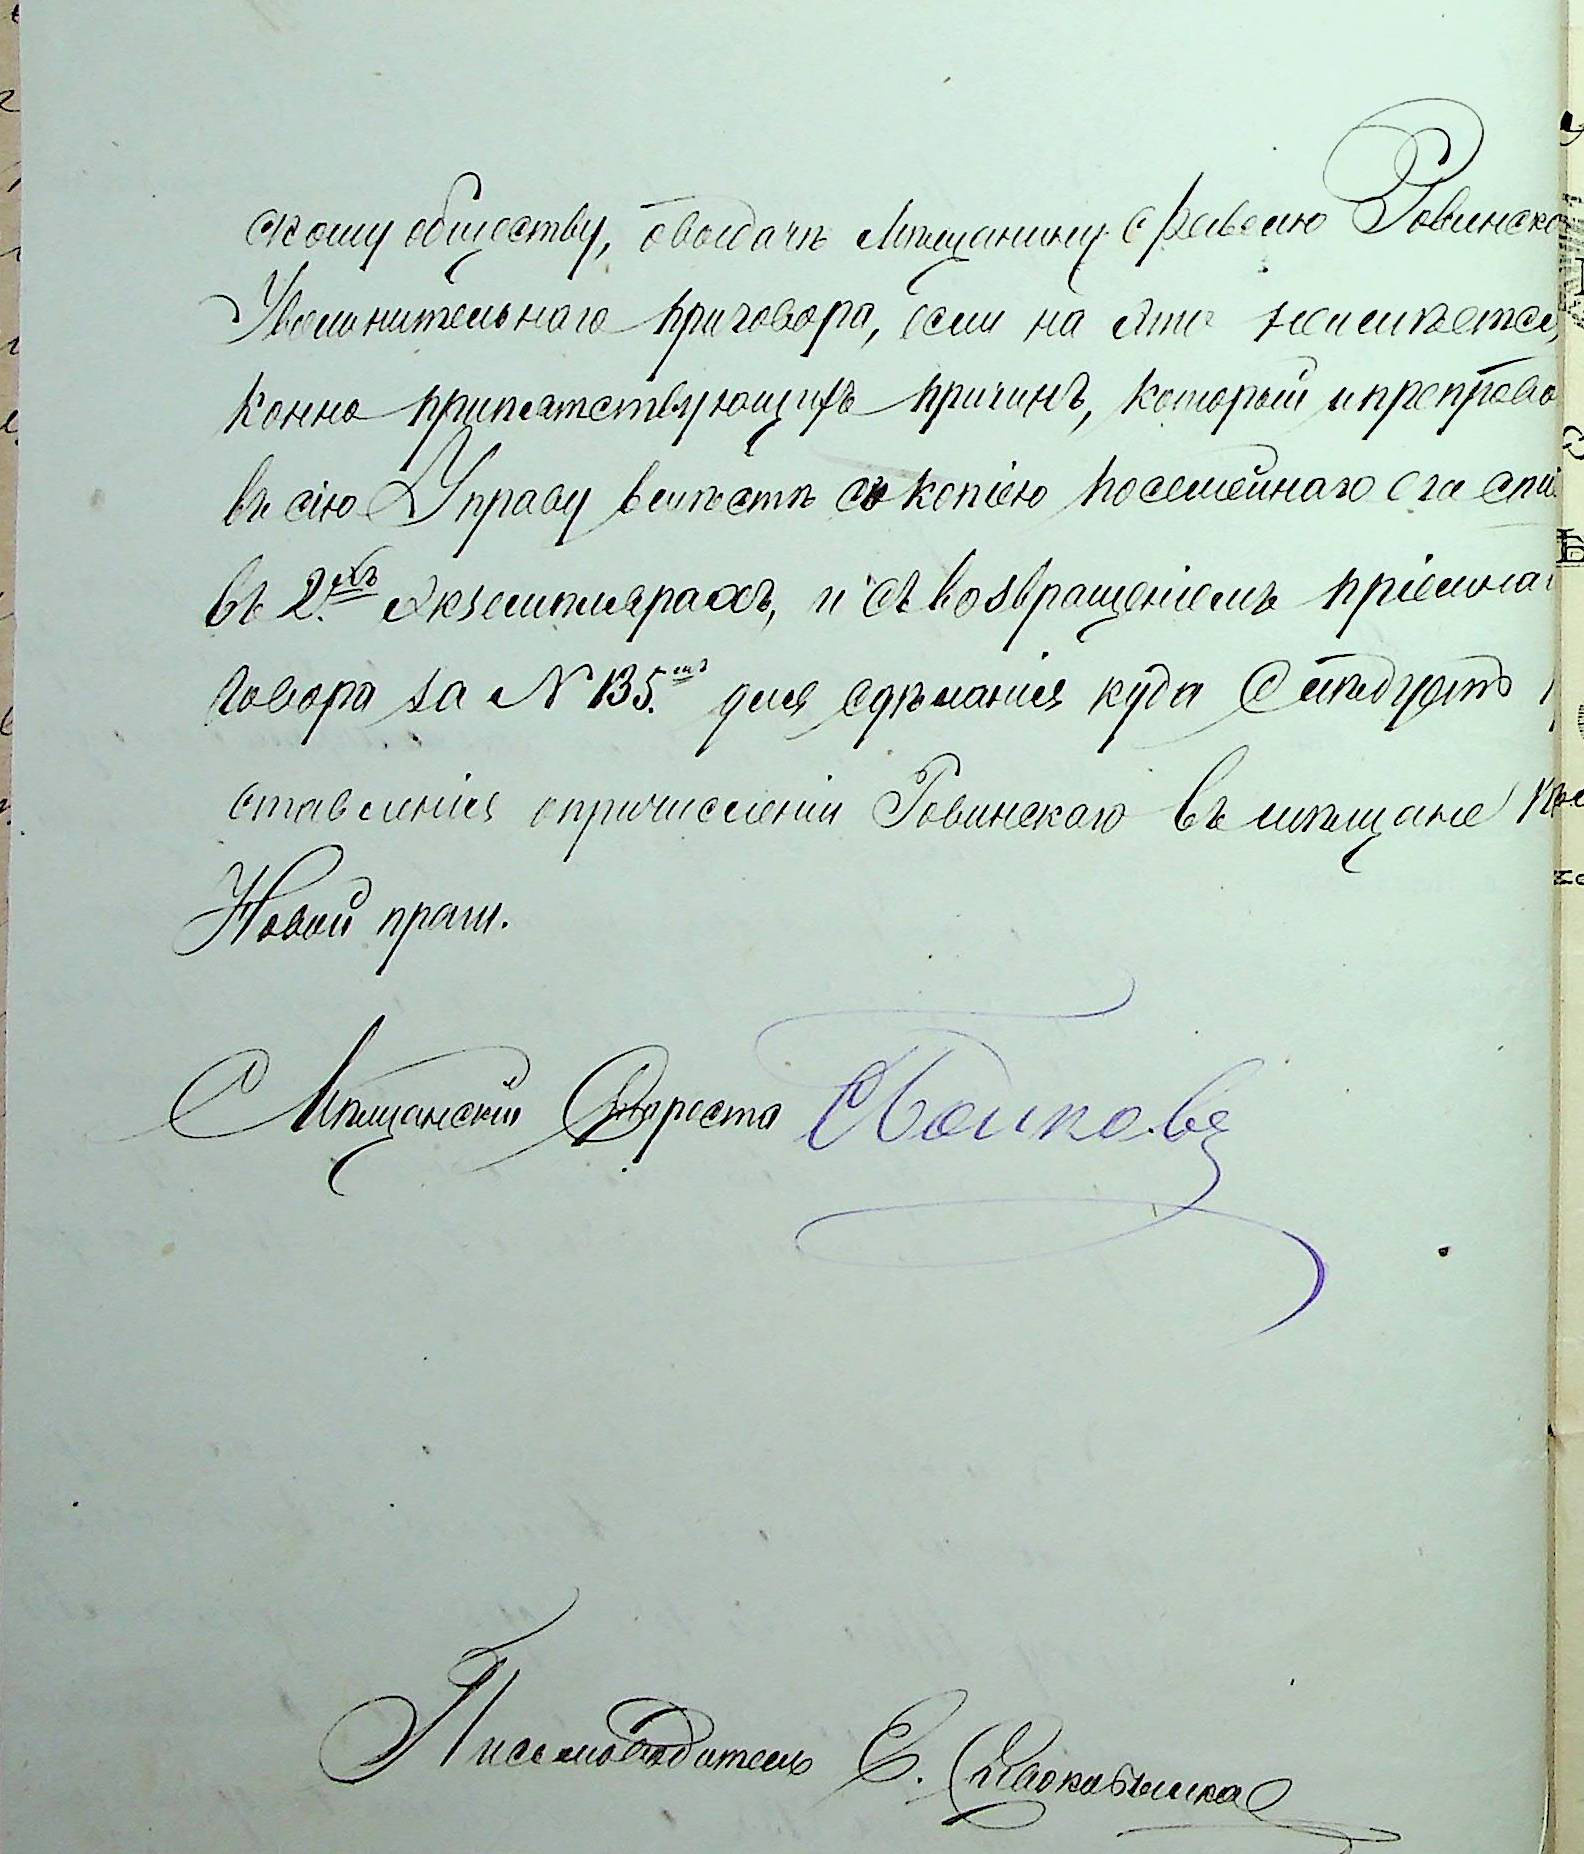 скому обществу, о выдачѣ мѣщанину Ровинско
Увольнительнаго приговора, если на это неимѣется,
конно припятствующихъ причинъ, который и препрово
въ сію Управу вмѣстѣ съ копіею посемейнаго его спи
въ 2.хъ экземплярахъ, и съ возвращеніемъ пріемна
говора за N 135. для сдѣланія куда слѣдуетъ
ставленія опричисленіи Ровинскаго въ мѣщане
Новой праги.
Мѣщанскій Староста
Письмоводитель Е.